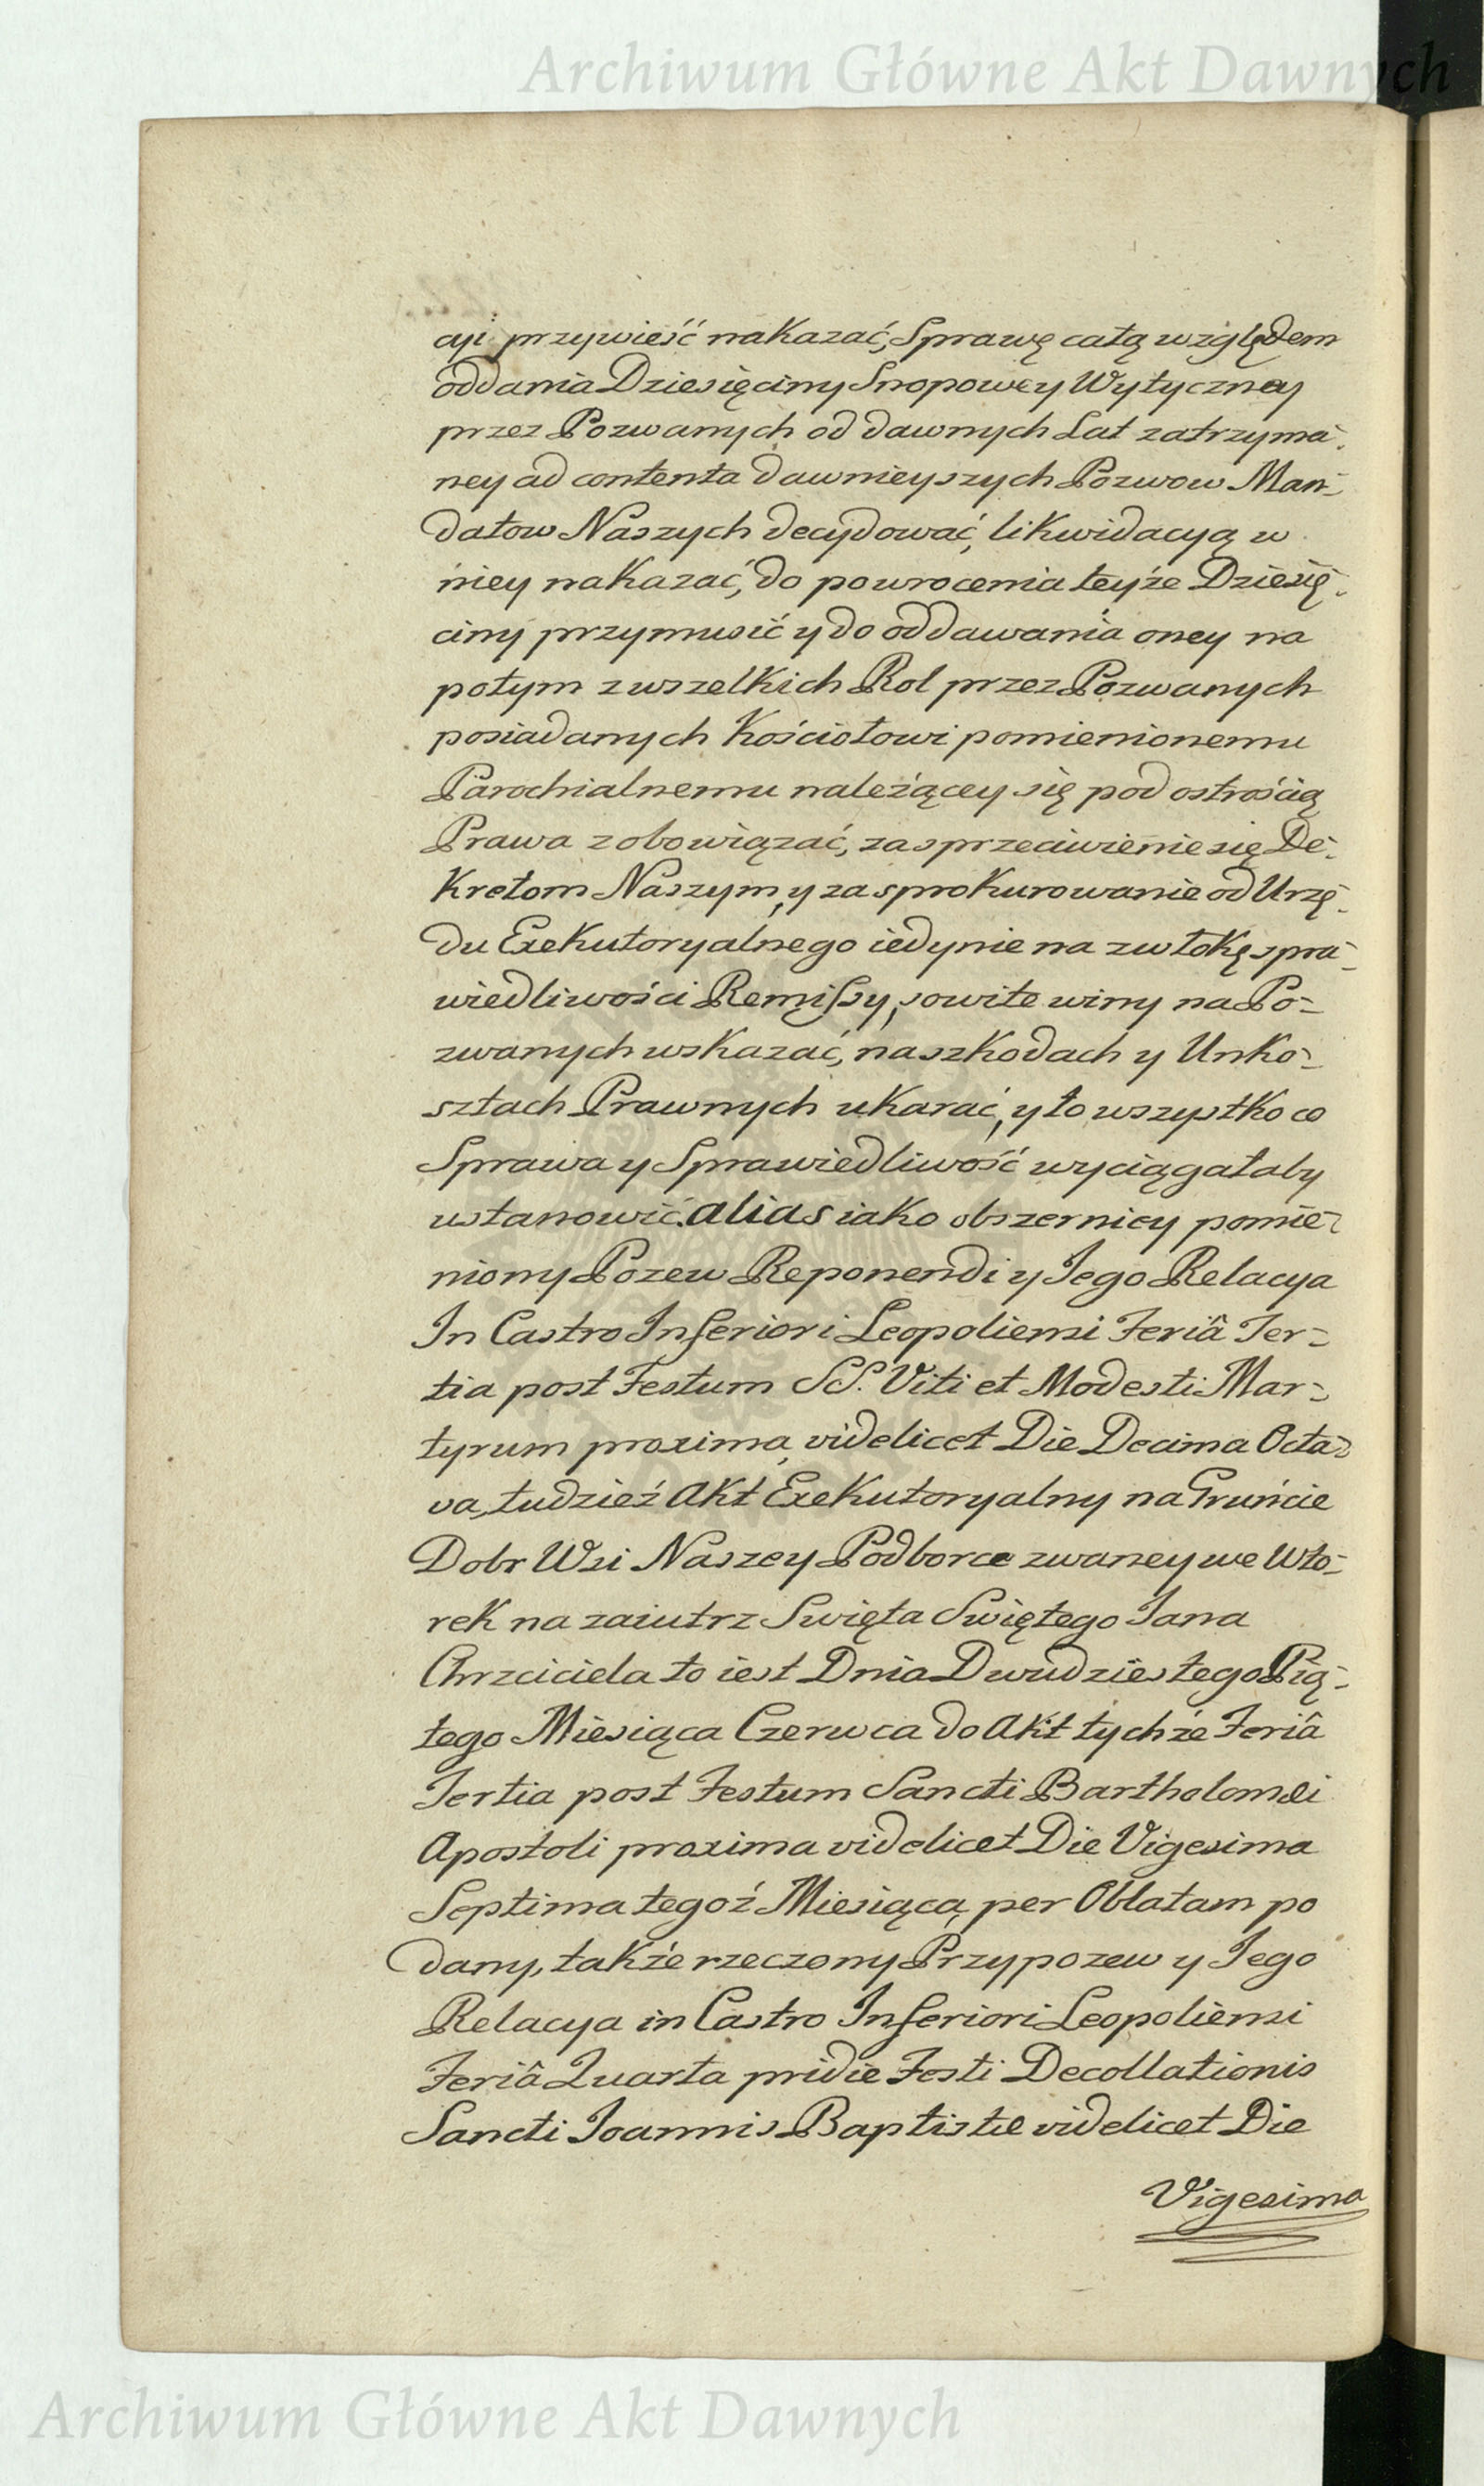 Archiwum Główne Akt Dawnych
cyi przywieść nakazać, Sprawę całą względem
oddania Dziesięciny Snopowey Wytyczney
przez Pozwanych od dawnych Lat zatrzyma-
ney ad contenta dawnieyszych Pozwow Man-
datow Naszych decydować, likwidacyą w
niey nakazać, do powrocenia teyże Dziesię-
ciny przymusić y do oddawania oney na
potym z wszelkich Rol przez Pozwanych
posiadanych Kościołowi pomienionemu
Parochialnemu należącey się pod ostrością
Prawa zobowiązać, za sprzeciwienie się De-
kretom Naszym, y za sprokurowanie od Urzę-
du Exekutoryalnego iedynie na zwłokę spra-
wiedliwości Remissy, sowite winy na Po-
zwanych wskazać, na szkodach y Unko-
sztach Prawnych ukarać, y to wszystko co
Sprawa y Sprawiedliwość wyciągałaby
ustanowić. alias iako obszerniey pomie-
niony Pozew Reponendi y Jego Relacya
In Castro Inferiori Leopoliensi Feriâ Ter-
tia post Festum SS. Viti et Modesti Mar-
tyrum proxima, videlicet Die Decima Octa-
va, tudzież Akt Exekutoryalny na Gruńcie
Dobr Wsi Naszey Podborce zwaney we Wto-
rek na zaiutrz Swięta Swiętego Jana
Chrzciciela to iest Dnia Dwudziestego Pią-
tego Miesiąca Czerwca do Akt tychże Feriâ
Tertia post Festum Sancti Bartholomæi
Apostoli proxima videlicet Die Vigesima
Septima tegoż Miesiąca, per Oblatam po
dany, także rzeczony Przypozew y Jego
Relacya in Castro Inferiori Leopoliensi
Feriâ Quarta pridie Festi Decollationis
Sancti Joannis Baptistæ videlicet Die
Vigesima
Archiwum Główne Akt Dawnych